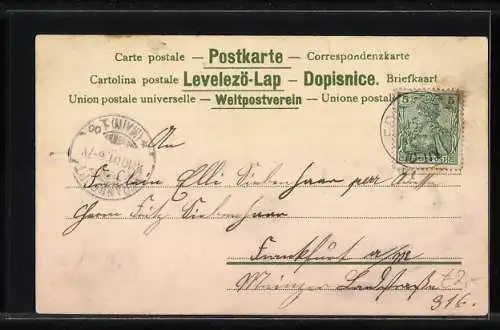 Carte postale – Postkarte – Correspondenzkarte
Cartolina postale Levelezö-Lap – Dopisnice. Briefkaart
Union postale universelle – Weltpostverein – Unione postale
5 5
An
Fräulein Elli Siebenhaar per Adr.
Herrn Fritz Siebenhaar
Frankfurt a/m
Mainzer Landstraße
316.